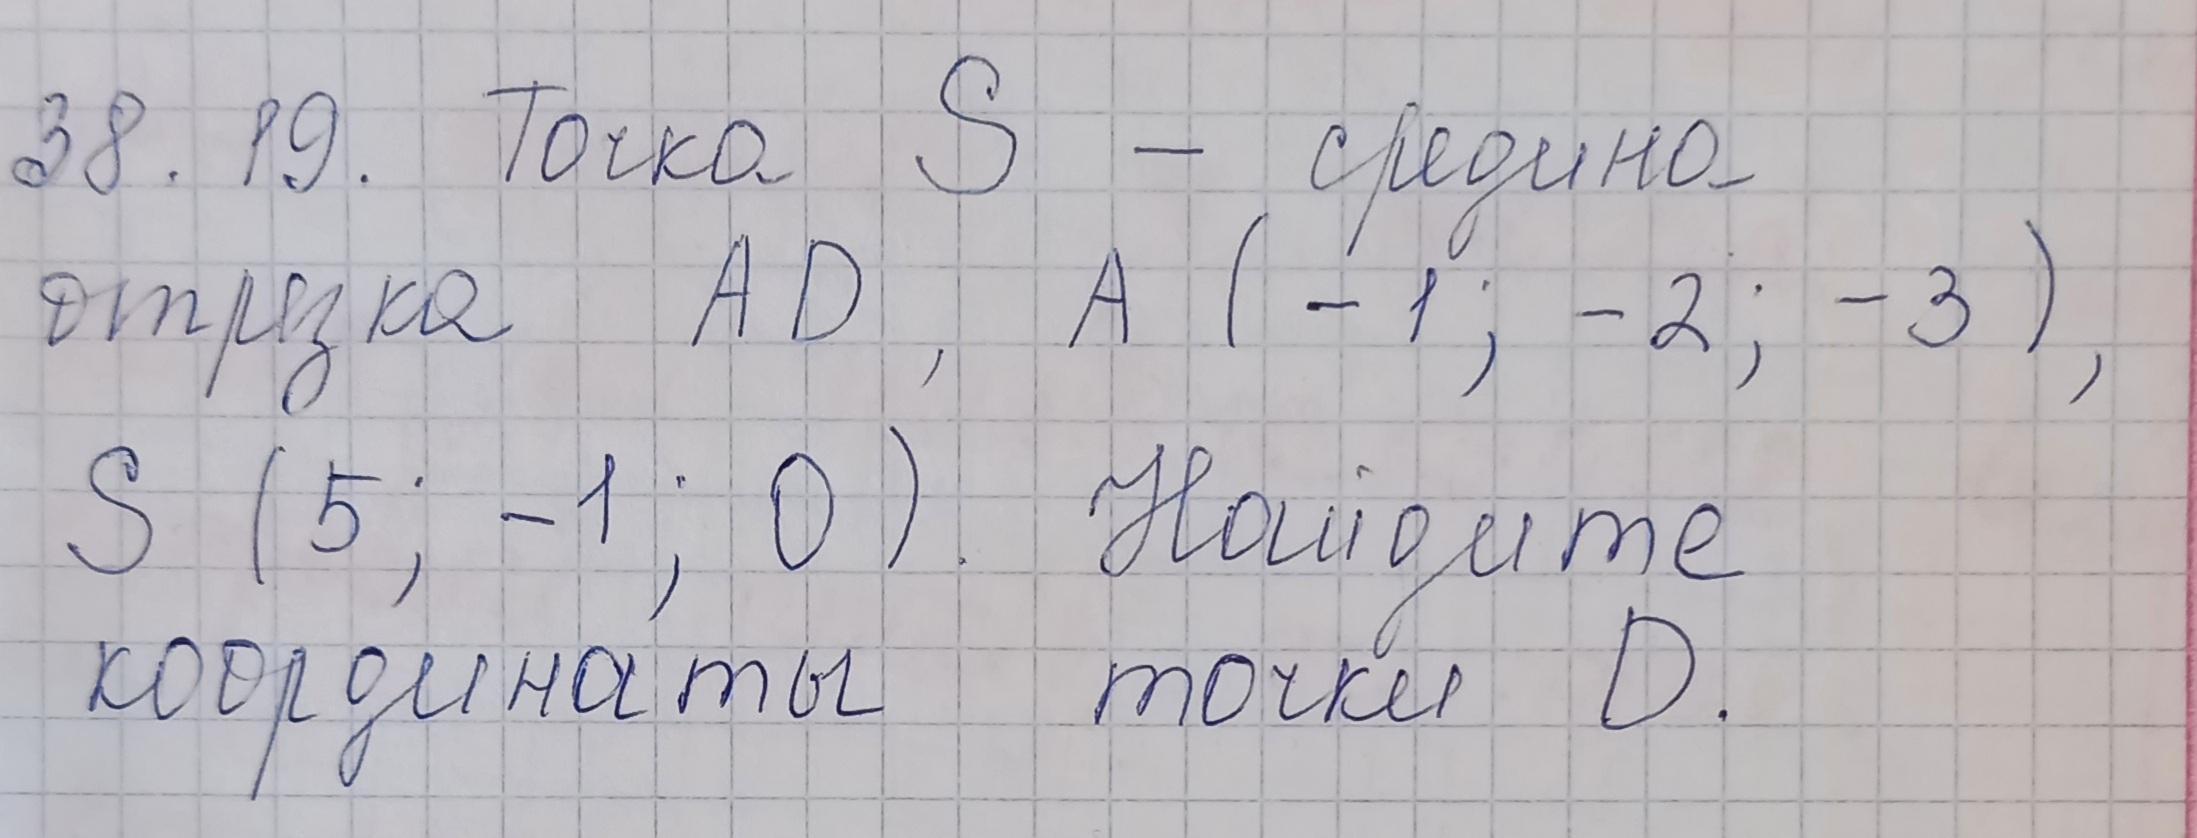 38.19. Точка S - средина
отрезка AD, A (-1; -2; -3),
S (5; -1; 0). Найдите
координаты точки D.